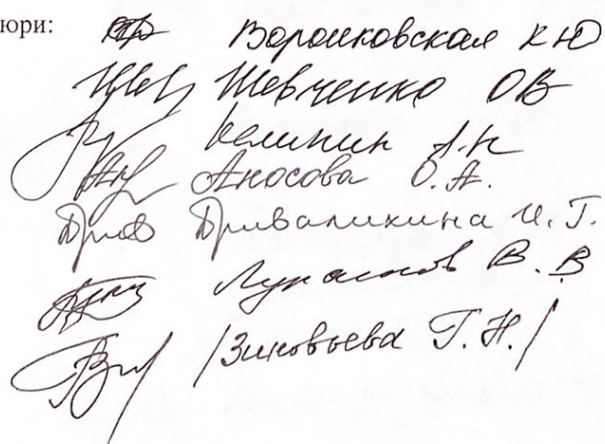 юри:
Воронковская К Ю
Шевченко ОВ
Калинин А.Н
Аносова О.А.
Приваликина И.Г.
В.В
/Зиновьева Г.Н./